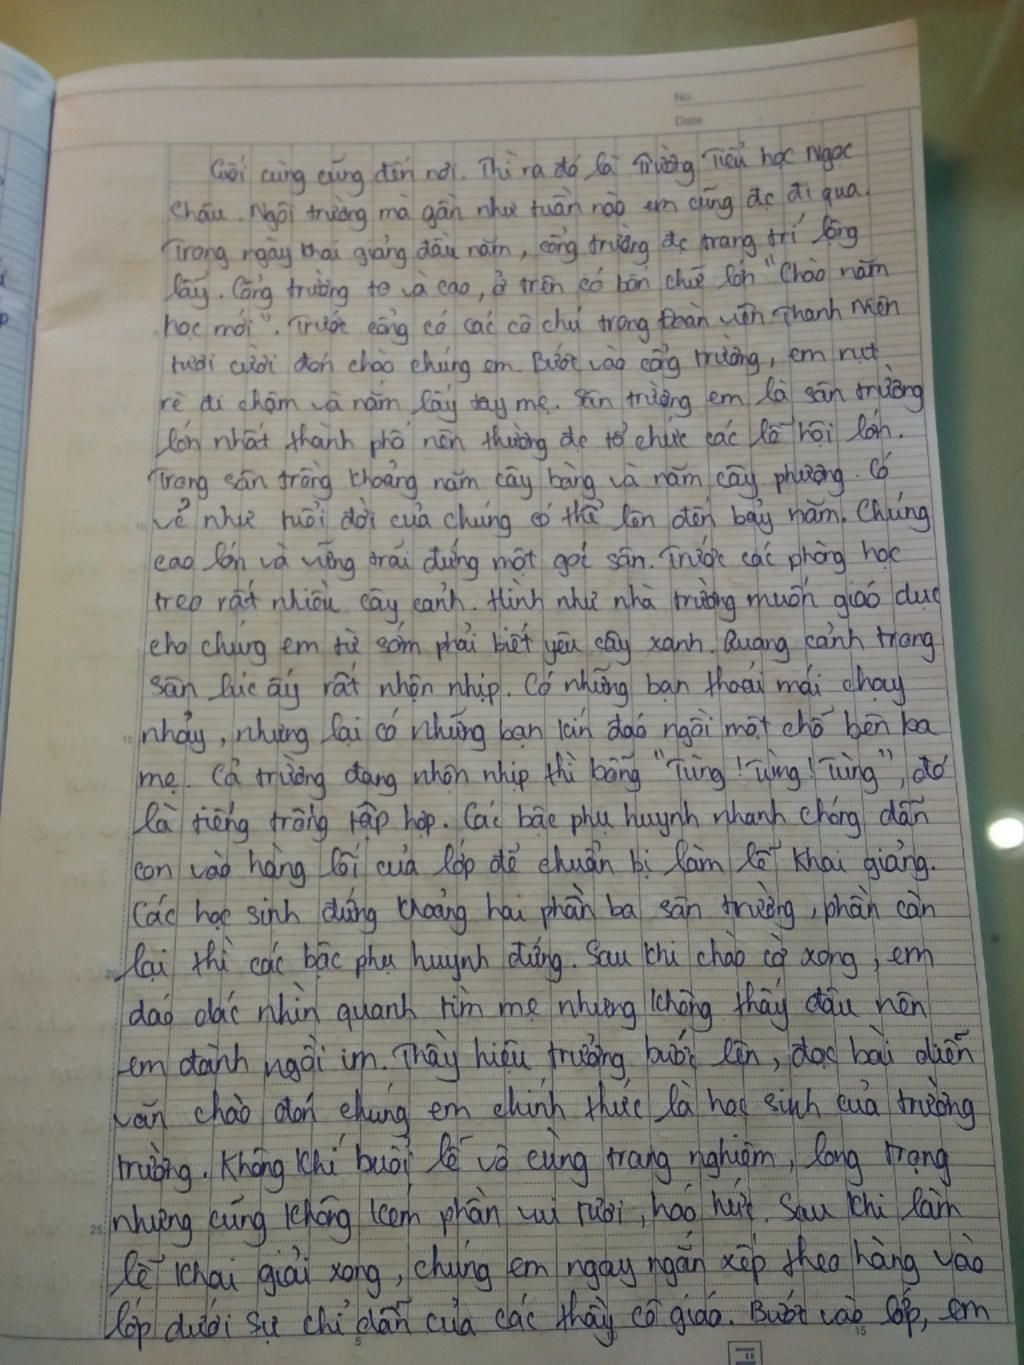 No.
Date
Cuối cùng cũng đến nơi. Thì ra đó là Trường Tiểu học Ngọc
Châu. Ngôi trường mà gần như tuần nào em cũng đc đi qua.
Trong ngày khai giảng đầu năm, cổng trường đc trang trí lộng
lẫy. Cổng trường to và cao, ở trên có bốn chữ lớn "Chào năm
học mới". Trước cổng có các cô chú trong Đoàn viên Thanh niên
tươi cười đón chào chúng em. Bước vào cổng trường, em rụt
rè đi chậm và nắm lấy tay mẹ. Sân trường em là sân trường
lớn nhất thành phố nên thường đc tổ chức các lễ hội lớn.
Trong sân trồng khoảng năm cây bàng và năm cây phượng. Có
vẻ như tuổi đời của chúng có thể lên đến bảy năm. Chúng
cao lớn và vững trãi đứng một góc sân. Trước các phòng học
treo rất nhiều cây cảnh. Hình như nhà trường muốn giáo dục
cho chúng em từ sớm phải biết yêu cây xanh. Quang cảnh trong
sân lúc ấy rất nhộn nhịp. Có những bạn thoải mái chạy
nhảy, nhưng lại có những bạn kín đáo ngồi một chỗ bên ba
mẹ. Cả trường đang nhộn nhịp thì bỗng "Tùng! Tùng! Tùng", đó
là tiếng trống tập hợp. Các bậc phụ huynh nhanh chóng dẫn
con vào hàng lối của lớp để chuẩn bị làm lễ khai giảng.
Các học sinh đứng khoảng hai phần ba sân trường, phần còn
lại thì các bậc phụ huynh đứng. Sau khi chào cờ xong, em
dáo dác nhìn quanh tìm mẹ nhưng không thấy đâu nên
em đành ngồi im. Thầy hiệu trưởng bước lên, đọc bài diễn
văn chào đón chúng em chính thức là học sinh của trường
trường. Không khí buổi lễ vô cùng trang nghiêm, long trọng
nhưng cũng không kém phần vui tươi, háo hức. Sau khi làm
lễ khai giải xong, chúng em ngay ngắn xếp theo hàng vào
lớp dưới sự chỉ dẫn của các thầy cô giáo. Bước vào lớp, em